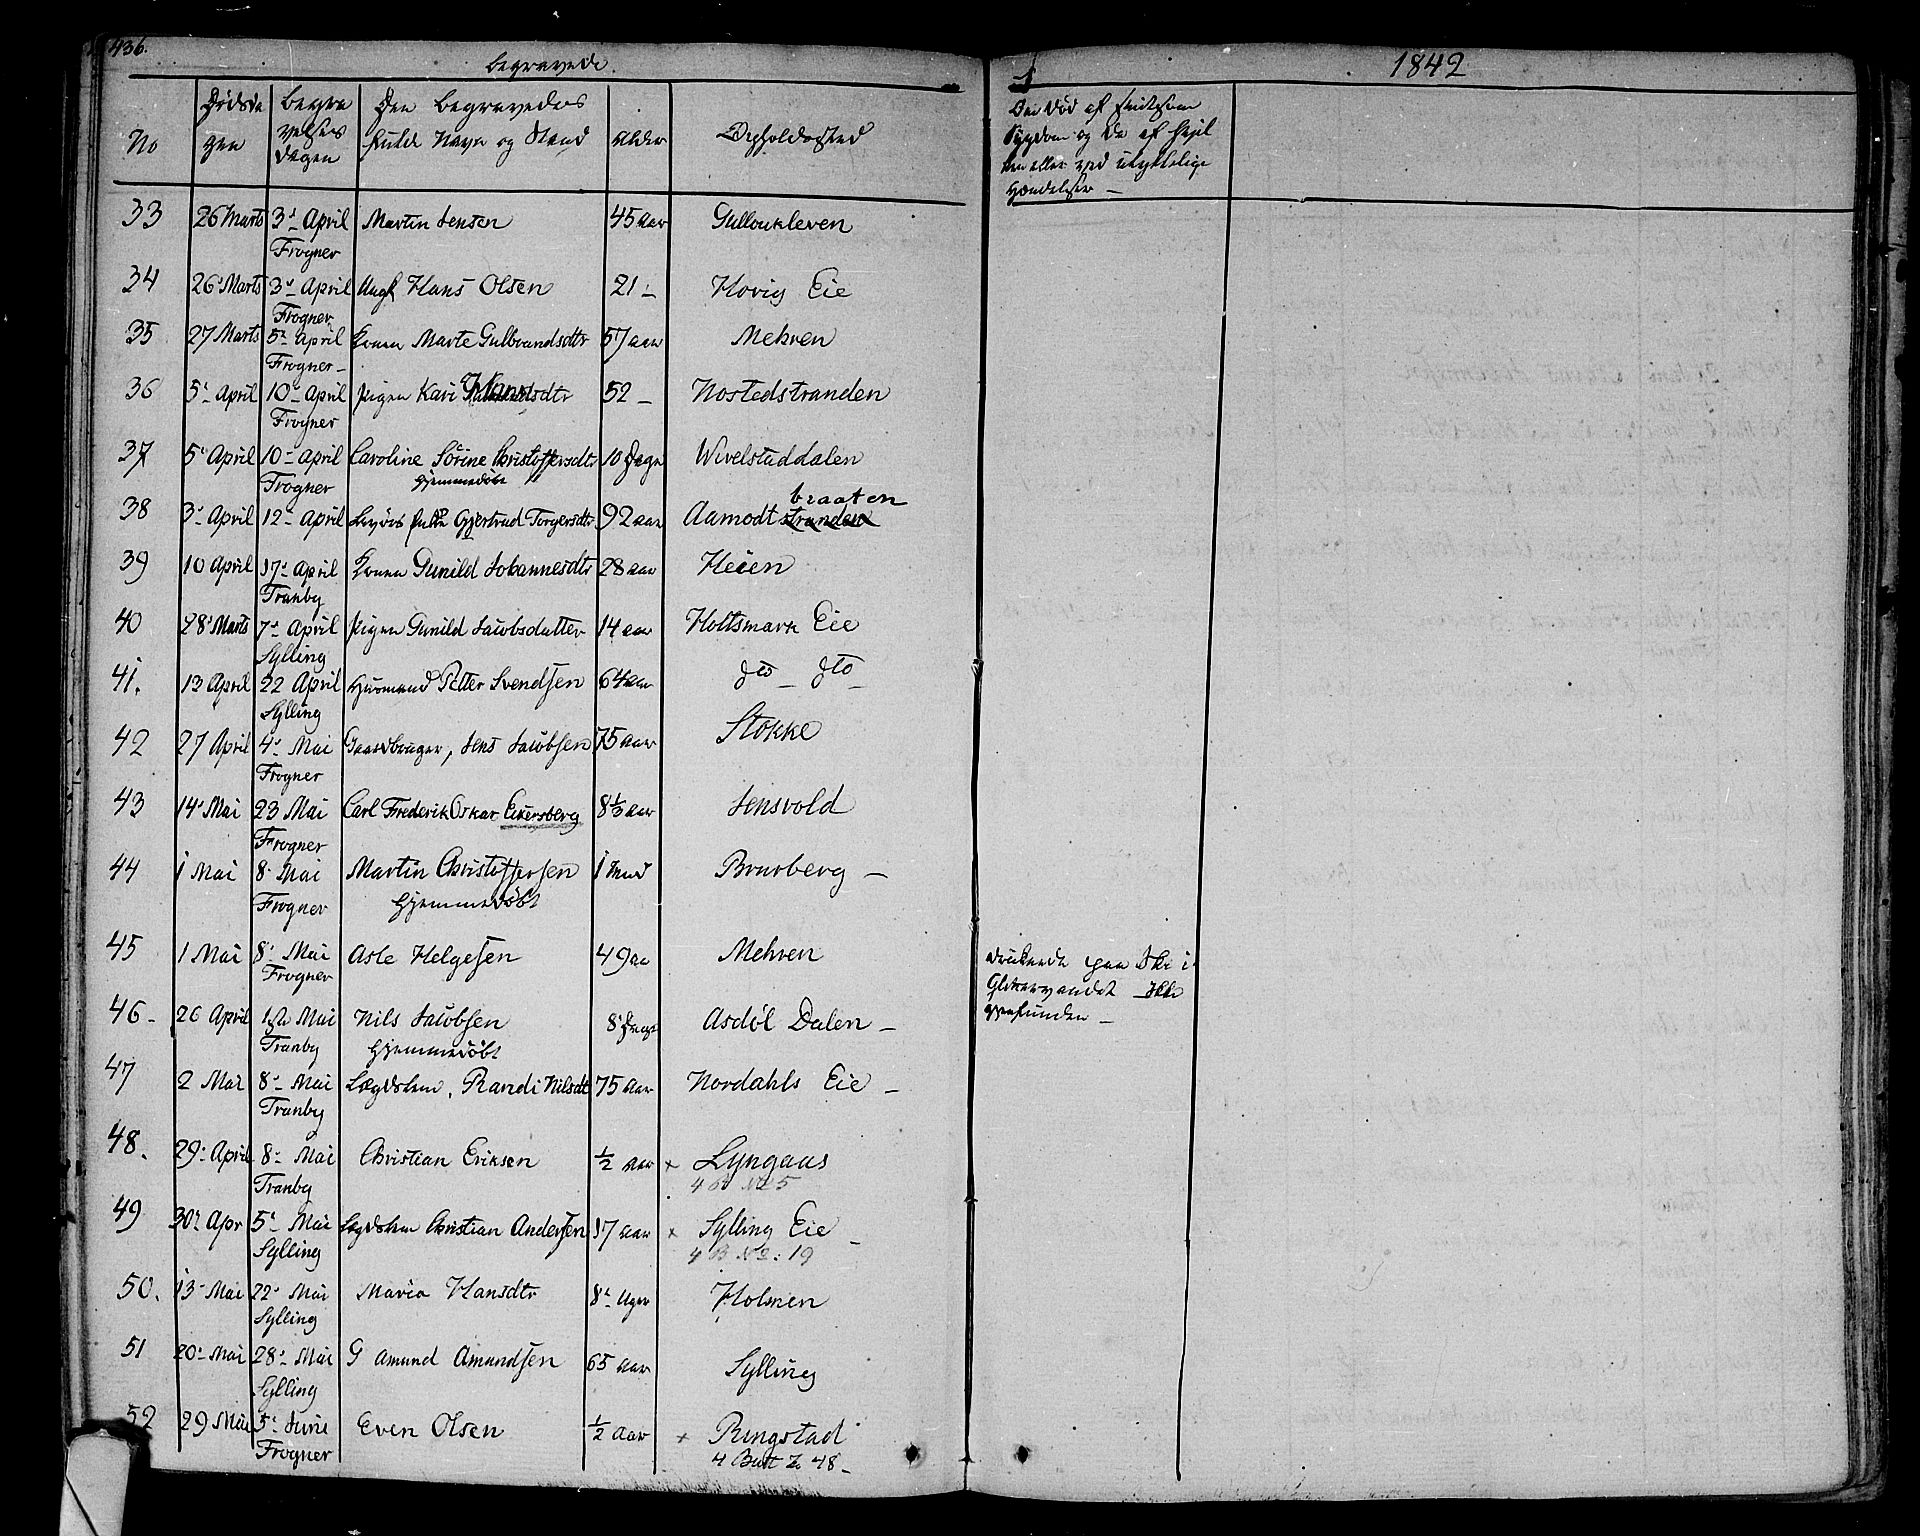 436.
begravede
1842
No
Dødsda
gen
begra
velses
dagen
Den begravedes
fulde Navn og Stand
Alder
Opholdssted
Om død af smitsom
Sygdom og da af hvil
ken eller ved ulykkelige
Hændelser –
33 26 Marts 3' April Martin Jensen 45 aar Gulloukleven
Frogner
34 26' Marts 3' April Ungk Hans Olsen 21 – Hovig Eie
Frogner
35 27 Marts 5' April Konen Marte Gulbrandsdtr 57 aar Mehren
Frogner –
36 5' April 10' April Pigen Kari Hansdtr 52 – Nostedstranden
Frogner
37 5' April 10' April Caroline Sørine Christoffersdtr 10 Dage Wivelstaddalen
Frogner hjemmedøbt
braaten
38 3' April 12' April Gjertrud Torgersdtr 92 aar Aamodtstranden
39 10 April 17' April Konen Gunild Johannesdtr 28 aar Heien
Tranby
40 28' Marts 7' April Pigen Gunild Jacobsdatter 14 aar Holtsmark Eie
Sylling
41. 13 April 22 April Huusmand Petter Svendsen 64 aar dto – dto –
Sylling
42 27 April 4' Mai Gaardbruger, Jens Jacobsen 75 aar Stokke
Frogner
43 14' Mai 23 Mai Carl Frederik Oskar Eckersberg 8 1/3 aar Jensvold
Frogner
44 1 Mai 8' Mai Martin Christoffersen 1 Mnd Brusberg –
Frogner hjemmedøbt
45 1 Mai 8' Mai Asle Helgesen 49 aa Mehren druknede paa Ski i
Frogner Glitrevandet Ikke
gjenfunden –
46 – 26 April 1ste Mai Nils Jacobsen 8' Dage Asdøl Dalen –
Tranby hjemmedøbt
47 2 Mai 8' Mai Lægdslem, Randi Nilsdt 75 aar Nordahls Eie –
Tranby
48. 29' April 8' Mai Christian Eriksen 1/2 aar × Lyngaas
Tranby 4 B No 5
49 30' Apr 5' Mai Lægdslem Christian Andersen 17 aar × Sylling Eie –
Sylling 4 B No: 19
50. 13' Mai 22' Mai Maria Hansdtr 8' Uger Holmen
Sylling
51 20' Mai 28' Mai G Amund Amundsen 65 aar Sylling
Sylling
52 29 Mai 5' Juni Even Olsen 1/2 aar × Ringstad
Frogner 48 –